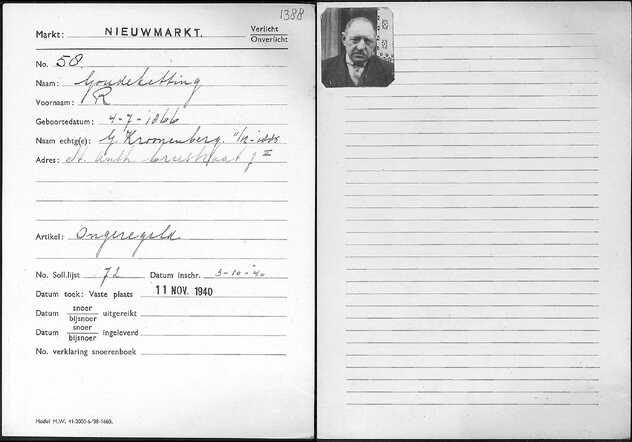 1388
Markt: NIEUWMARKT. Verlicht
Onverlicht
No. 58.
Naam: Goudeketting
Voornaam: R
Geboortedatum: 4-7-1866
Naam echtg(e): G. Kroonenberg.
Adres: St. Anth. II
Artikel: Ongeregeld
No. Soll.lijst 72 Datum inschr. 3-10-'40
Datum toek: Vaste plaats 11 NOV. 1940
Datum snoer
bijsnoer uitgereikt
Datum snoer
bijsnoer ingeleverd
No. verklaring snoerenboek
Model M.W. 41-2000-6-'38-1460.